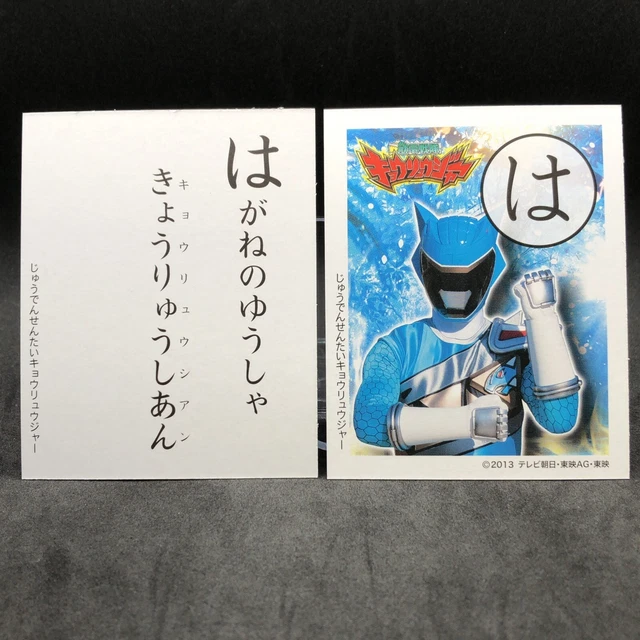 はがねのゆうしゃ
きょうりゅうしあん
キョウリュウシアン
じゅうでんせんたいキョウリュウジャー
キョウリュウジャー
は
じゅうでんせんたいキョウリュウジャー
©2013 テレビ朝日・東映AG・東映